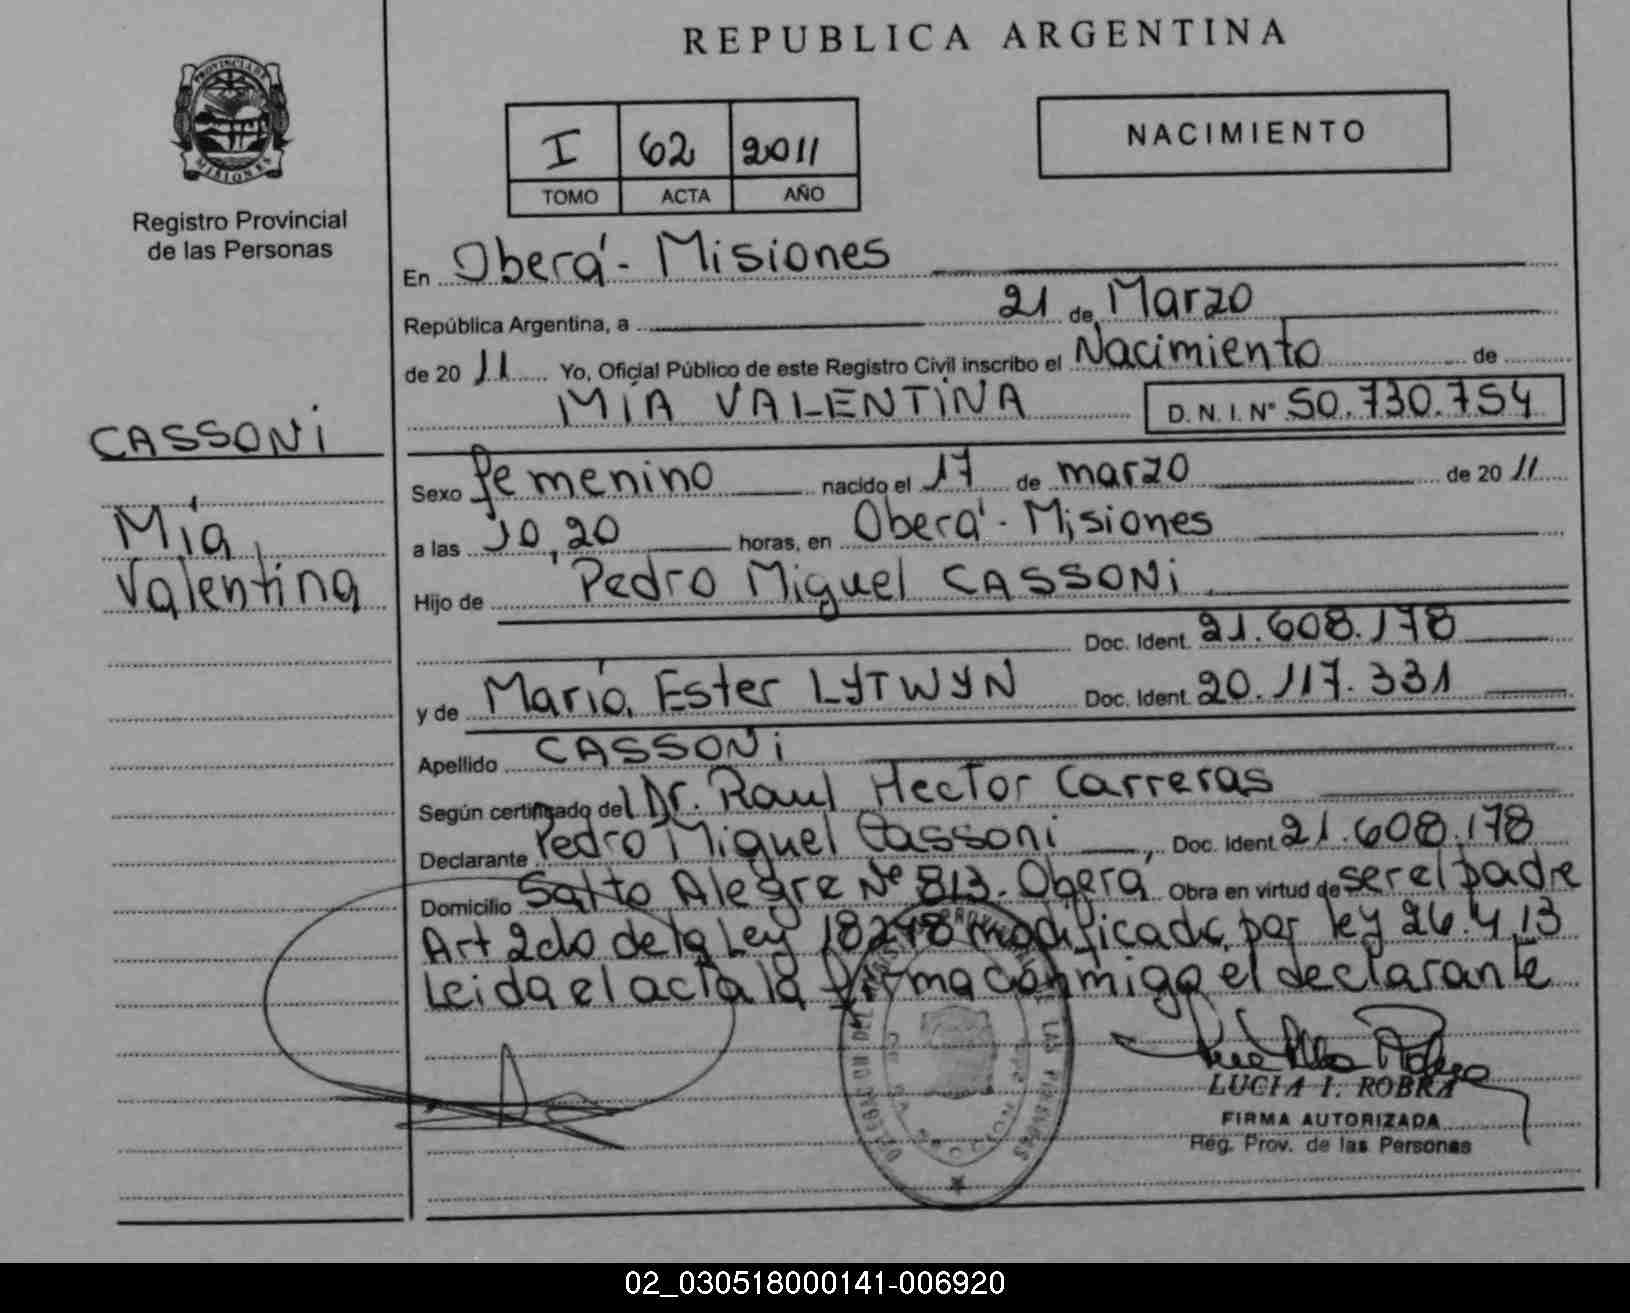 REPUBLICA ARGENTINA
PROVINCIA DE
MISIONES
Registro Provincial
de las Personas
I 62 2011
TOMO ACTA AÑO
NACIMIENTO
En Oberá - Misiones
República Argentina, a 21 de Marzo
de 20 11 Yo, Oficial Público de este Registro Civil inscribo el Nacimiento de
MÍA VALENTINA D. N. I. N° 50.730.754
CASSONi
Mía
Valentina
Sexo femenino nacido el 17 de marzo de 20 11
a las 10,20 horas, en Oberá - Misiones
Hijo de Pedro Miguel CASSONi
Doc. Ident. 21.608.178
y de María Ester LYTWYN Doc. Ident. 20.117.331
Apellido CASSONi
Según certificado del Dr. Raul Hector Carreras
Declarante Pedro Miguel Cassoni, Doc. Ident 21.608.178
Domicilio Salto Alegre Nº 813. Oberá Obra en virtud de ser el padre
Art 2do de la Ley 18248 modificada por ley 26.413
Leida el acta la firma conmigo el declarante
LUCIA I. ROBRA
FIRMA AUTORIZADA
Reg. Prov. de las Personas
02_030518000141-006920